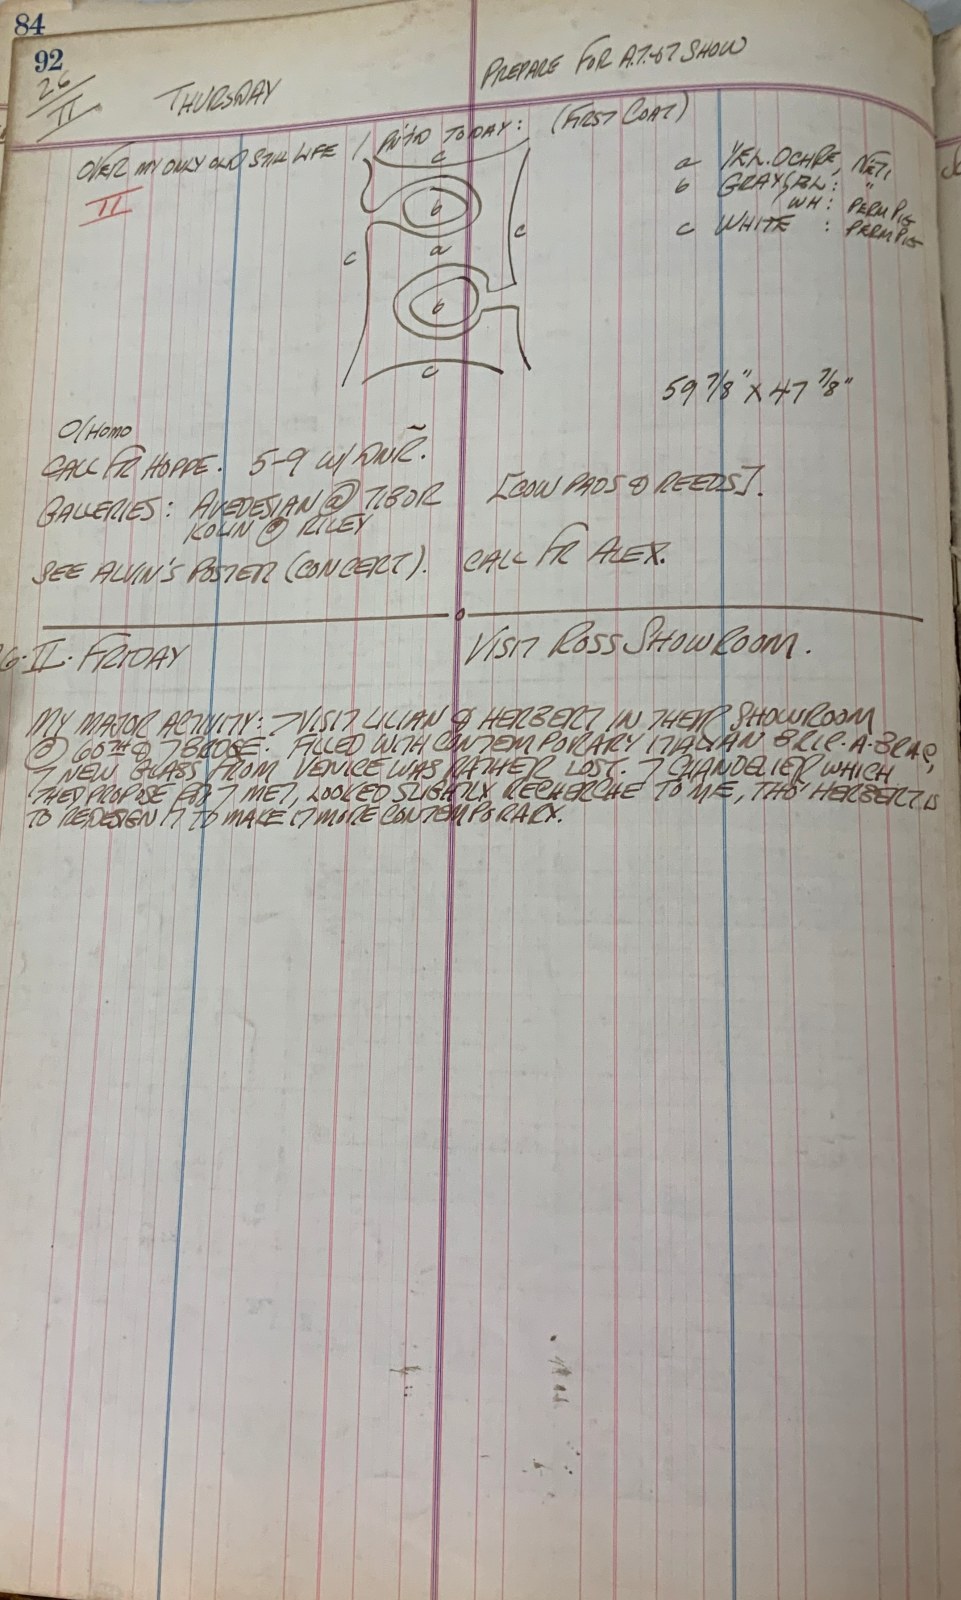 84
92
26/II THURSDAY PREPARE FOR A.T.&T SHOW
OVER MY ONLY OLD STILL LIFE / PNT'D TODAY: (FIRST COAT)
II
c
b
a
c
c
b
c
a YEL. OCHRE,
b GRAY BL: "
WH: PERM PIG
c WHITE : PERM PIG
59 7/8" X 47 7/8"
O/HOMO
CALL FR HOPPE. 5-9 W/ DNR.
GALLERIES: AVEDESIAN @ TIBOR [COW PADS & REEDS].
KOLIN @ RILEY
SEE ALVIN'S POSTER (CONCERT). CALL FR ALEX.
6·II· FRIDAY VISIT ROSS SHOWROOM.
MY MAJOR ACTIVITY: T VISIT LILIAN & HERBERT IN THEIR SHOWROOM
@ 60TH & FILLED WITH CONTEMPORARY ITALIAN BRIC-A-BRAC,
T NEW GLASS FROM VENICE WAS RATHER LOST. T CHANDELIER WHICH
THEY PROPOSE FOR T MET, LOOKED SLIGHTLY RECHERCHE TO ME, THO' HERBERT IS
TO REDESIGN IT TO MAKE IT MORE CONTEMPORARY.